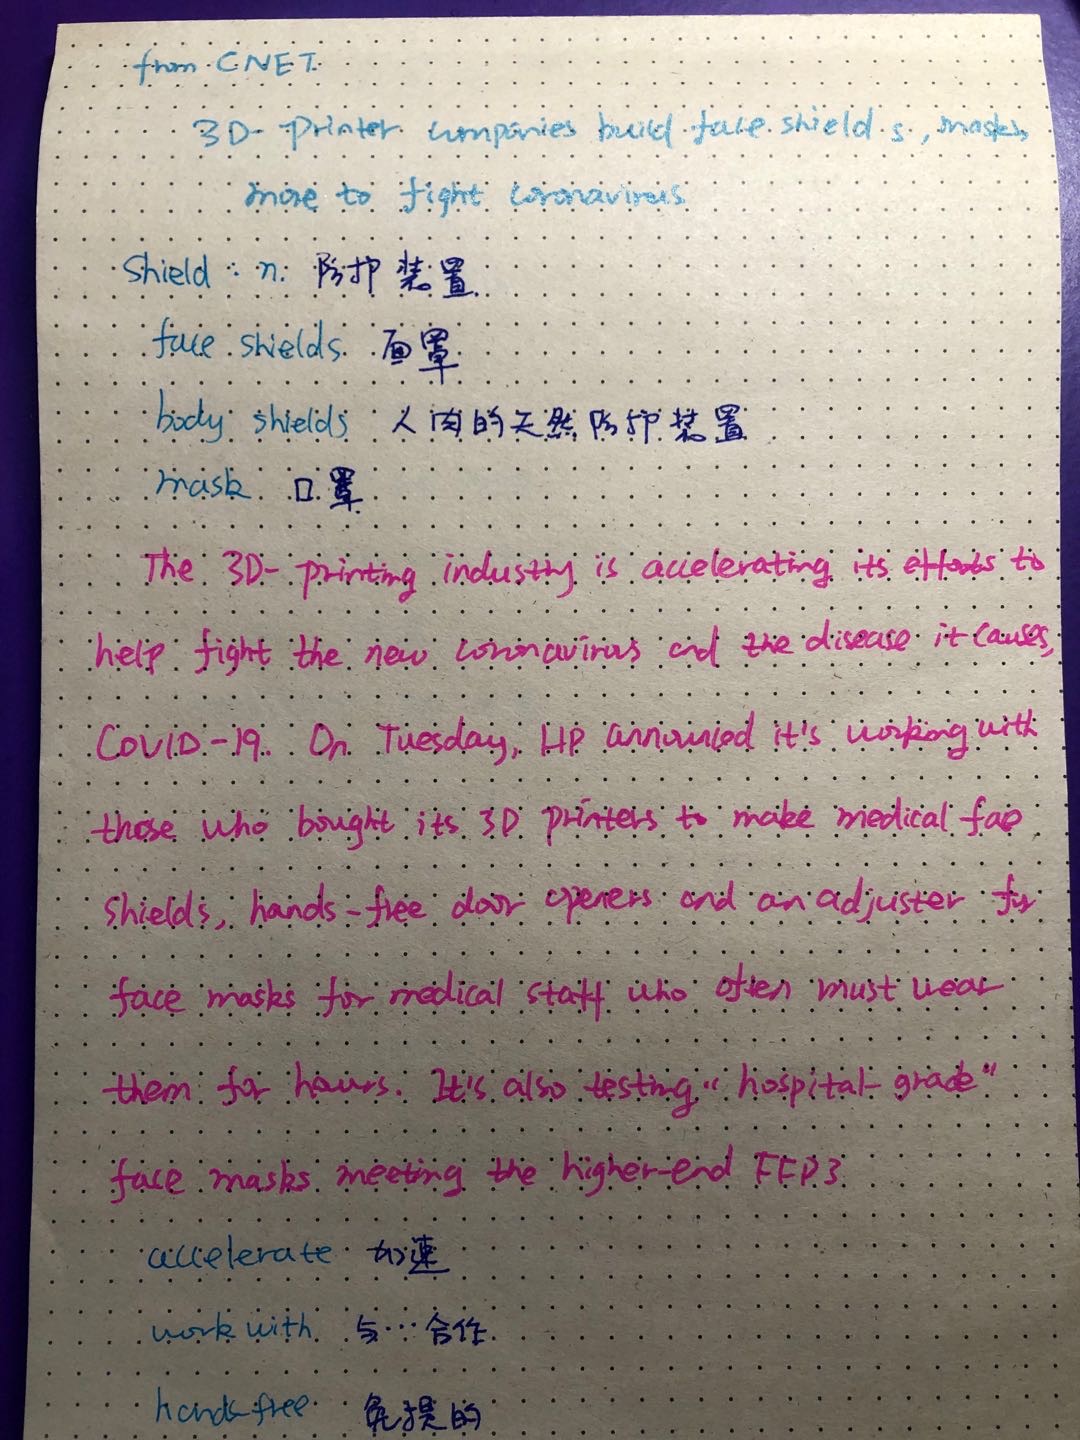 from CNET
3D-printer companies build face shields, masks,
more to fight coronavirus
Shield : n. 防护装置
face shields 面罩
body shields 人肉的天然防护装置
mask 口罩
The 3D-printing industry is accelerating its efforts to
help fight the new coronavirus and the disease it causes,
COVID-19. On Tuesday, HP announced it's working with
those who bought its 3D printers to make medical face
shields, hands-free door openers and an adjuster for
face masks for medical staff who often must wear
them for hours. It's also testing "hospital-grade"
face masks meeting the higher-end FFP3
accelerate 加速
work with 与…合作
hands-free 免提的